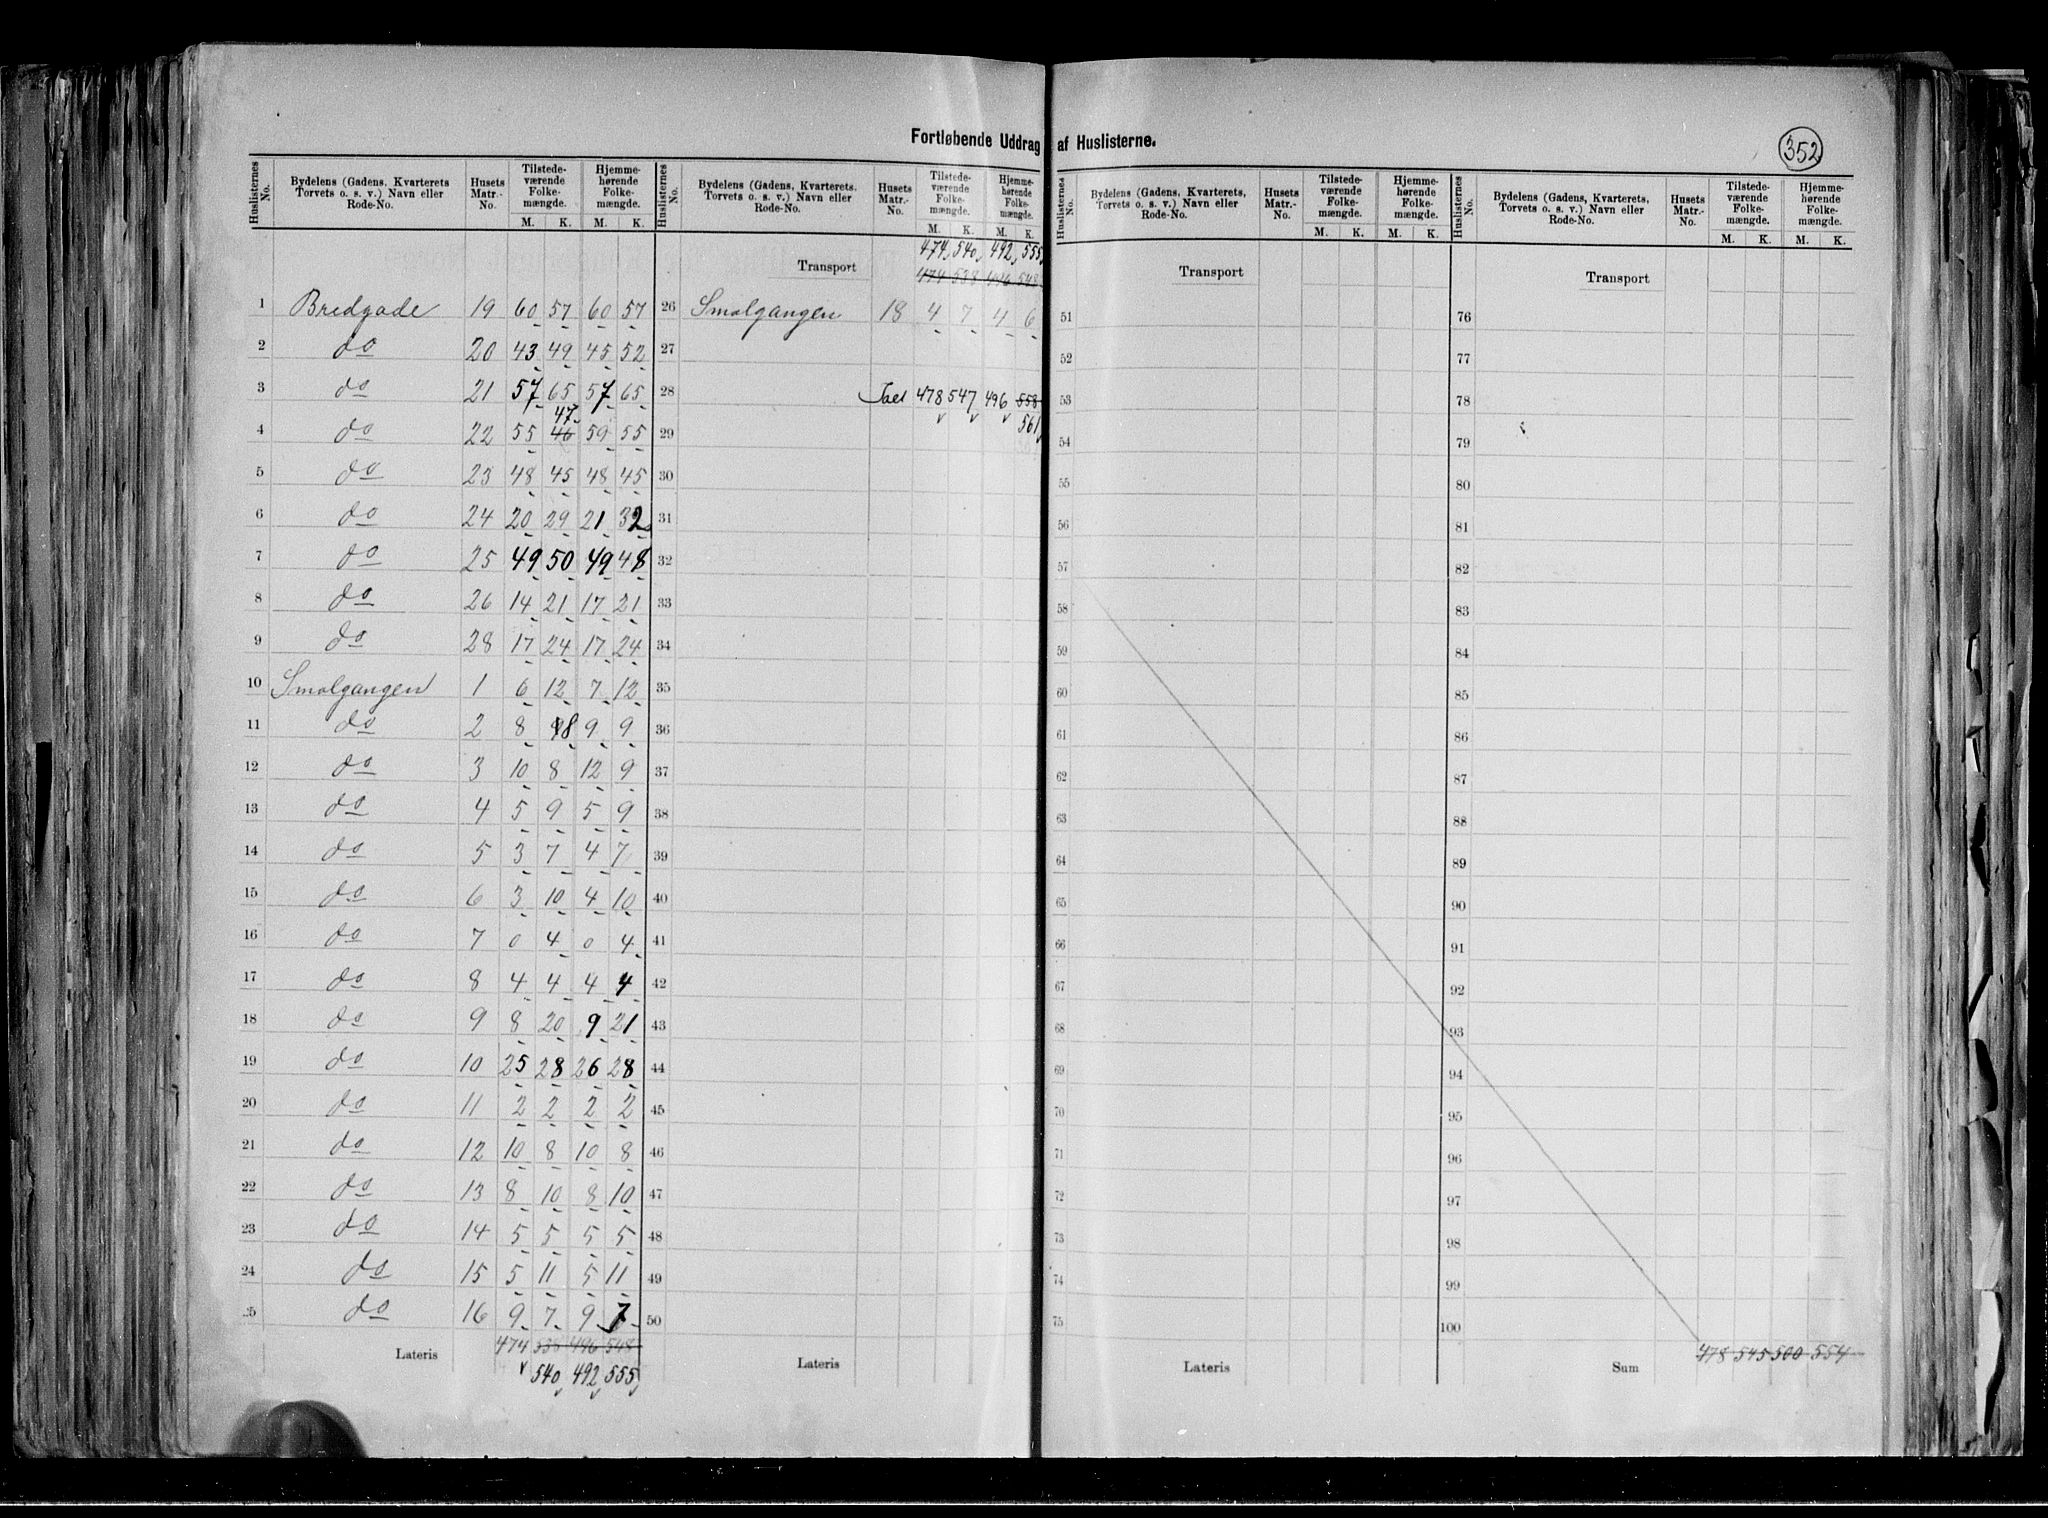 Fortløbende Uddrag af Huslisterne.
352
Huslisternes No. | Bydelens (Gadens, Kvarterets Torvets o. s. v.) Navn eller Rode-No. | Husets Matr.-No. | Tilstedeværende Folkemængde. M. K. | Hjemmehørende Folkemængde. M. K.
1 Bredgade 19 60 57 60 57
2 do 20 43 49 45 52
3 do 21 57 65 57 65
4 do 22 55 46 47 59 55
5 do 23 48 45 48 45
6 do 24 20 29 21 32
7 do 25 49 50 49 48
8 do 26 14 21 17 21
9 do 28 17 24 17 24
10 Smalgangen 1 6 12 7 12
11 do 2 8 8 9 9
12 do 3 10 8 12 9
13 do 4 5 9 5 9
14 do 5 3 7 4 7
15 do 6 3 10 4 10
16 do 7 0 4 0 4
17 do 8 4 4 4 4
18 do 9 8 20 9 21
19 do 10 25 28 26 28
20 do 11 2 2 2 2
21 do 12 10 8 10 8
22 do 13 8 10 8 10
23 do 14 5 5 5 5
24 do 15 5 11 5 11
25 do 16 9 7 9 7
Lateris 474 538 496 548
540 492 555
Huslisternes No. | Bydelens (Gadens, Kvarterets, Torvets o. s. v.) Navn eller Rode-No. | Husets Matr.-No. | Tilstedeværende Folkemængde. M. K. | Hjemmehørende Folkemængde. M. K.
474 540 492 555
Transport 474 538 496 548
26 Smalgangen 18 4 7 4 6
27
28 Ialt 478 547 496 558
561
29
30
31
32
33
34
35
36
37
38
39
40
41
42
43
44
45
46
47
48
49
50
Lateris
Huslisternes No. | Bydelens (Gadens, Kvarterets, Torvets o. s. v.) Navn eller Rode-No. | Husets Matr.-No. | Tilstedeværende Folkemængde. M. K. | Hjemmehørende Folkemængde. M. K.
Transport
51
52
53
54
55
56
57
58
59
60
61
62
63
64
65
66
67
68
69
70
71
72
73
74
75
Lateris
Huslisternes No. | Bydelens (Gadens, Kvarterets, Torvets o. s. v.) Navn eller Rode-No. | Husets Matr.-No. | Tilstedeværende Folkemængde. M. K. | Hjemmehørende Folkemængde. M. K.
Transport
76
77
78
79
80
81
82
83
84
85
86
87
88
89
90
91
92
93
94
95
96
97
98
99
100
Sum 478 545 500 554